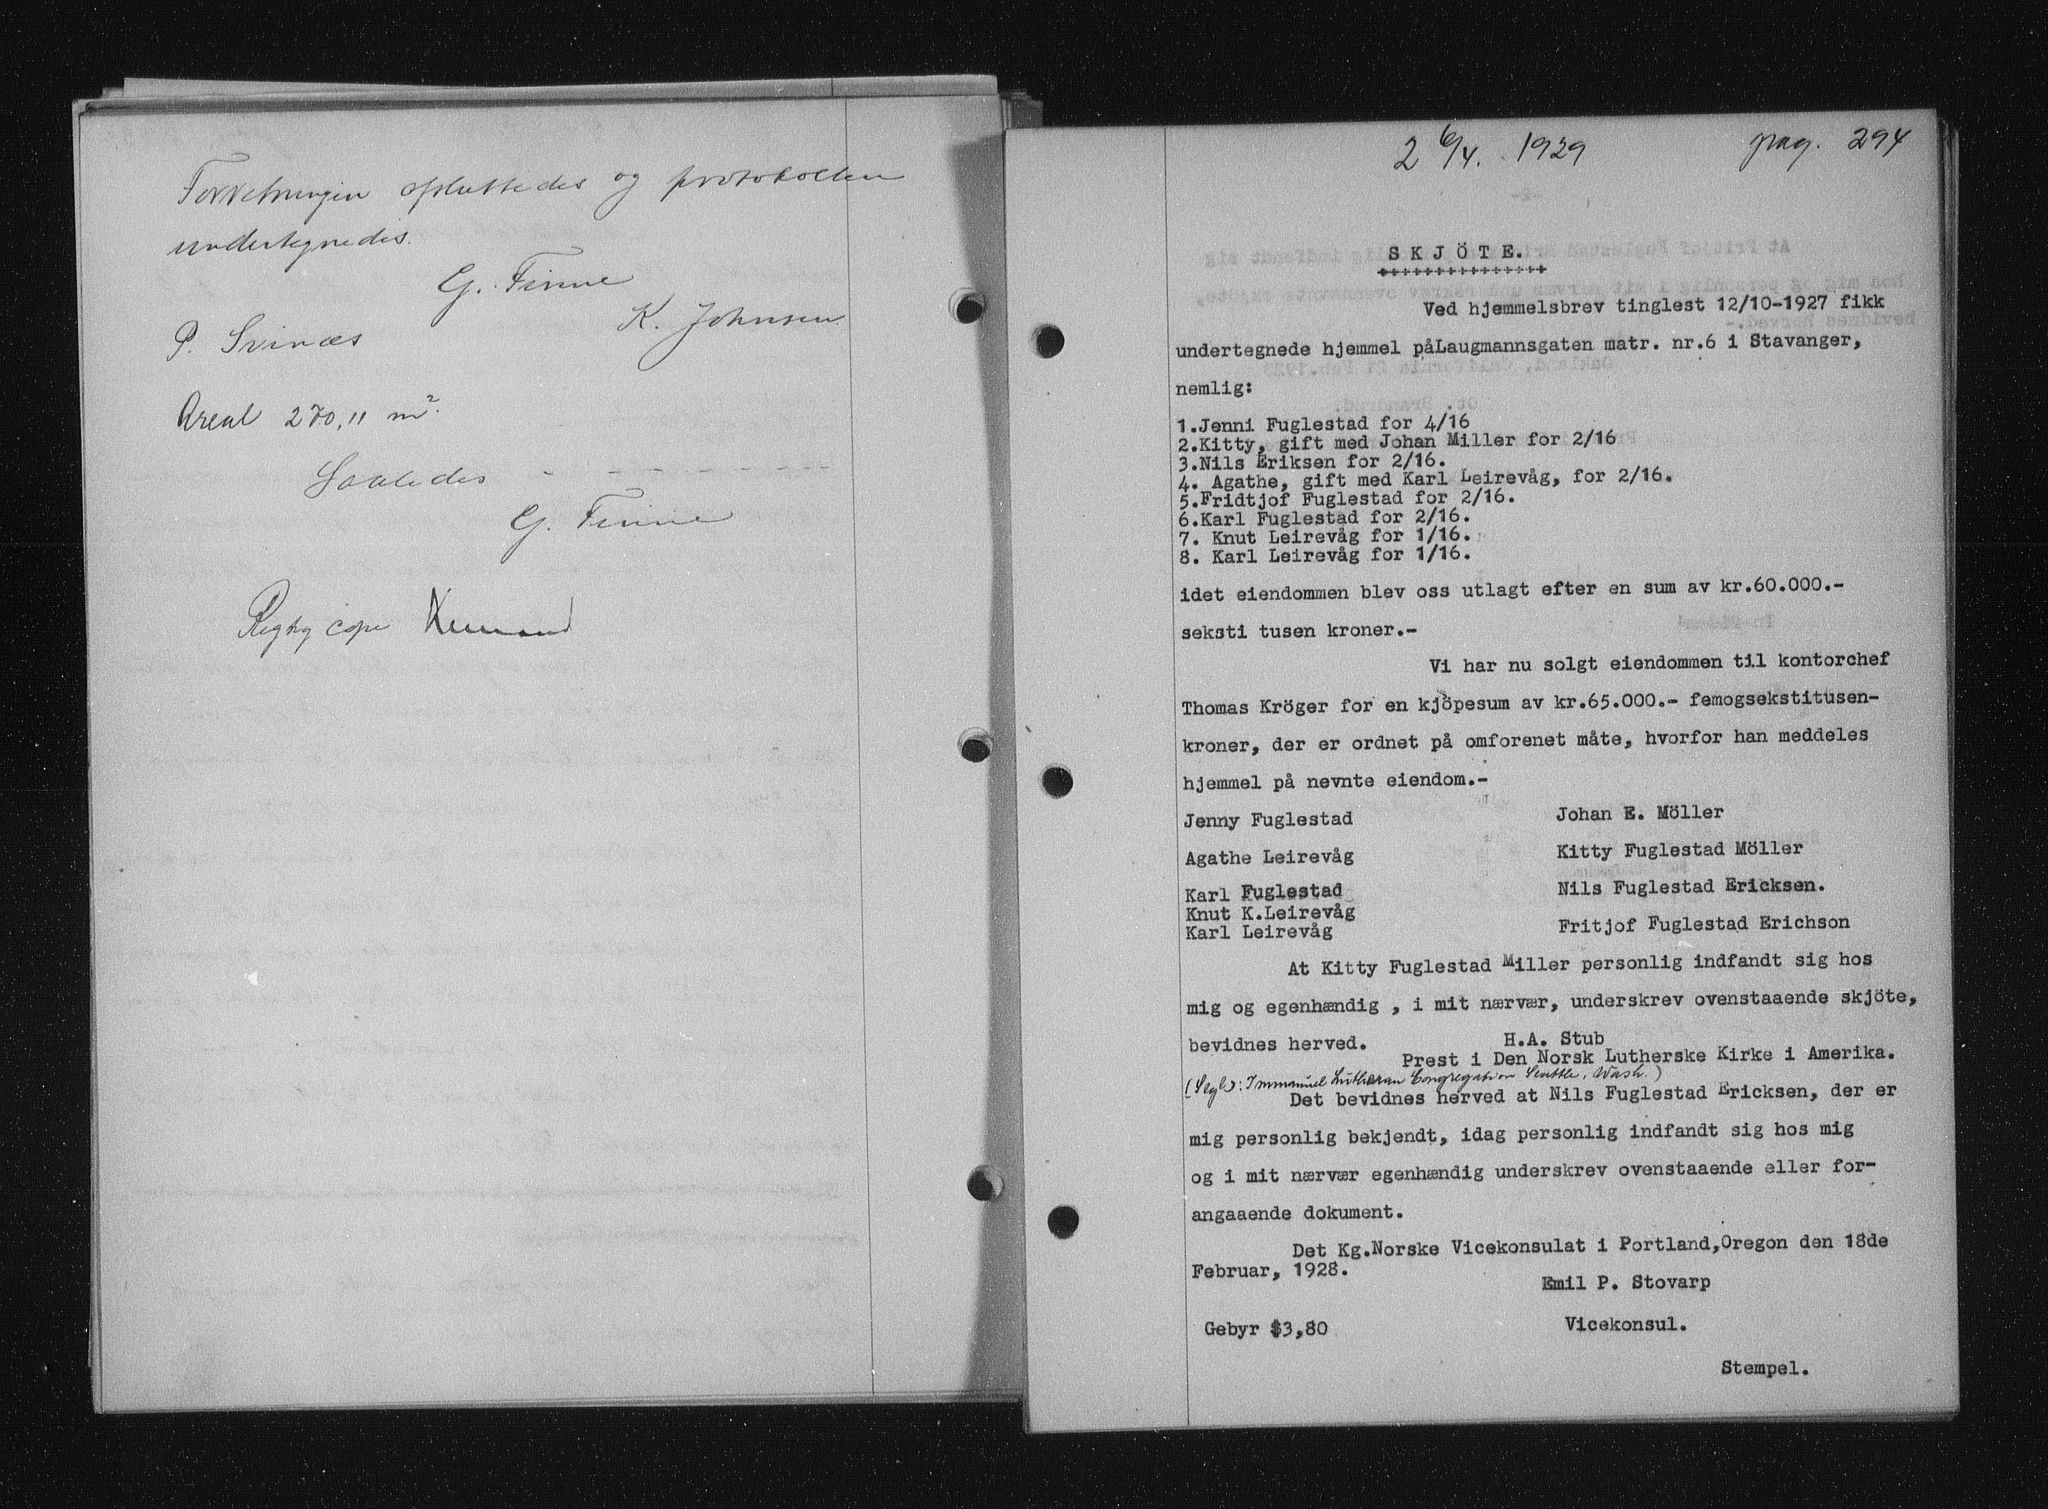 Forretningen afsluttedes og protokollen
undertegnedes.
G. Finne
K. Johnsen
P. Svinæs
Areal 270,11 m².
Saaledes - - - - - - - - - -
G. Finne
Rigtig copi
2 6/4. 1929 pag. 294
SKJÖTE.
Ved hjemmelsbrev tinglest 12/10-1927 fikk
undertegnede hjemmel påLaugmannsgaten matr. nr.6 i Stavanger,
nemlig:
1.Jenni Fuglestad for 4/16
2.Kitty, gift med Johan Miller for 2/16
3.Nils Eriksen for 2/16.
4. Agathe, gift med Karl Leirevåg, for 2/16.
5.Fridtjof Fuglestad for 2/16.
6.Karl Fuglestad for 2/16.
7. Knut Leirevåg for 1/16.
8. Karl Leirevåg for 1/16.
idet eiendommen blev oss utlagt efter en sum av kr.60.000.-
seksti tusen kroner.-
Vi har nu solgt eiendommen til kontorchef
Thomas Kröger for en kjöpesum av kr.65.000.- femogsekstitusen-
kroner, der er ordnet på omforenet måte, hvorfor han meddeles
hjemmel på nevnte eiendom.-
Jenny Fuglestad Johan E. Möller
Agathe Leirevåg Kitty Fuglestad Möller
Karl Fuglestad Nils Fuglestad Ericksen.
Knut K.Leirevåg
Karl Leirevåg Fritjof Fuglestad Erichson
At Kitty Fuglestad Miller personlig indfandt sig hos
mig og egenhændig , i mit nærvær, underskrev ovenstaaende skjöte,
bevidnes herved. H.A. Stub
Prest i Den Norsk Lutherske Kirke i Amerika.
(Segl): Immanuel Lutheran Congregation Seattle, Wash.)
Det bevidnes herved at Nils Fuglestad Ericksen, der er
mig personlig bekjendt, idag personlig indfandt sig hos mig
og i mit nærvær egenhændig underskrev ovenstaaende eller for-
angaaende dokument.
Det Kg.Norske Vicekonsulat i Portland,Oregon den 18de
Februar, 1928.
Emil P. Stovarp
Gebyr $3,80 Vicekonsul.
Stempel.